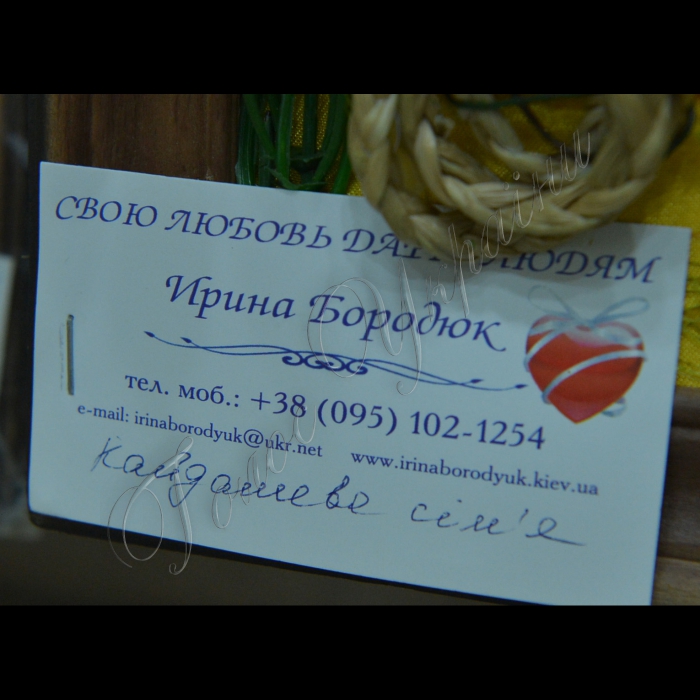 СВОЮ ЛЮБОВЬ ДАРЮ ЛЮДЯМ
Ирина Бородюк
тел. моб.: +38 (095) 102-1254
e-mail: irinaborodyuk@ukr.net www.irinaborodyuk.kiev.ua
сім'я